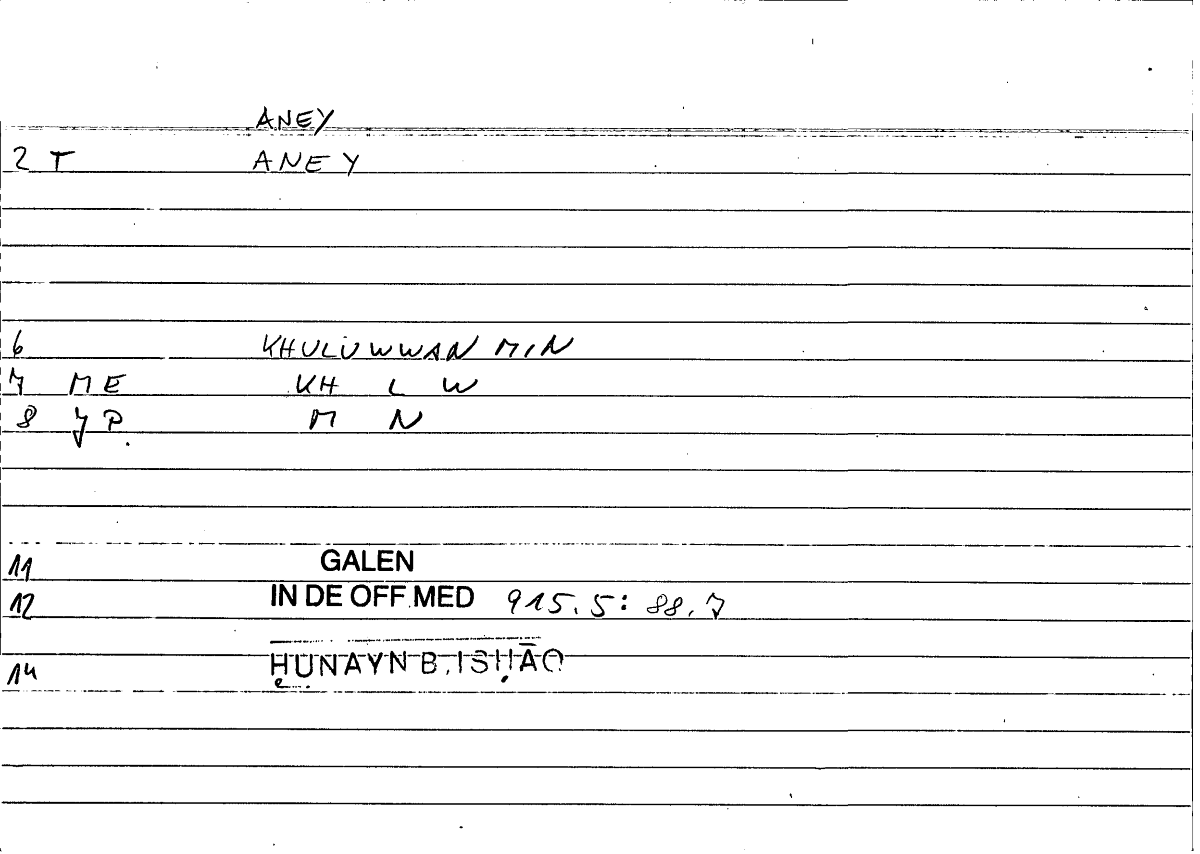 ANEY
2 T ANEY
6 KHULŪWWAN MIN
7 ME KH L W
8 JP. M N
11 GALEN
12 IN DE OFF.MED 915.5: 88.7
14 ḤUNAYN B. ISḤĀQ